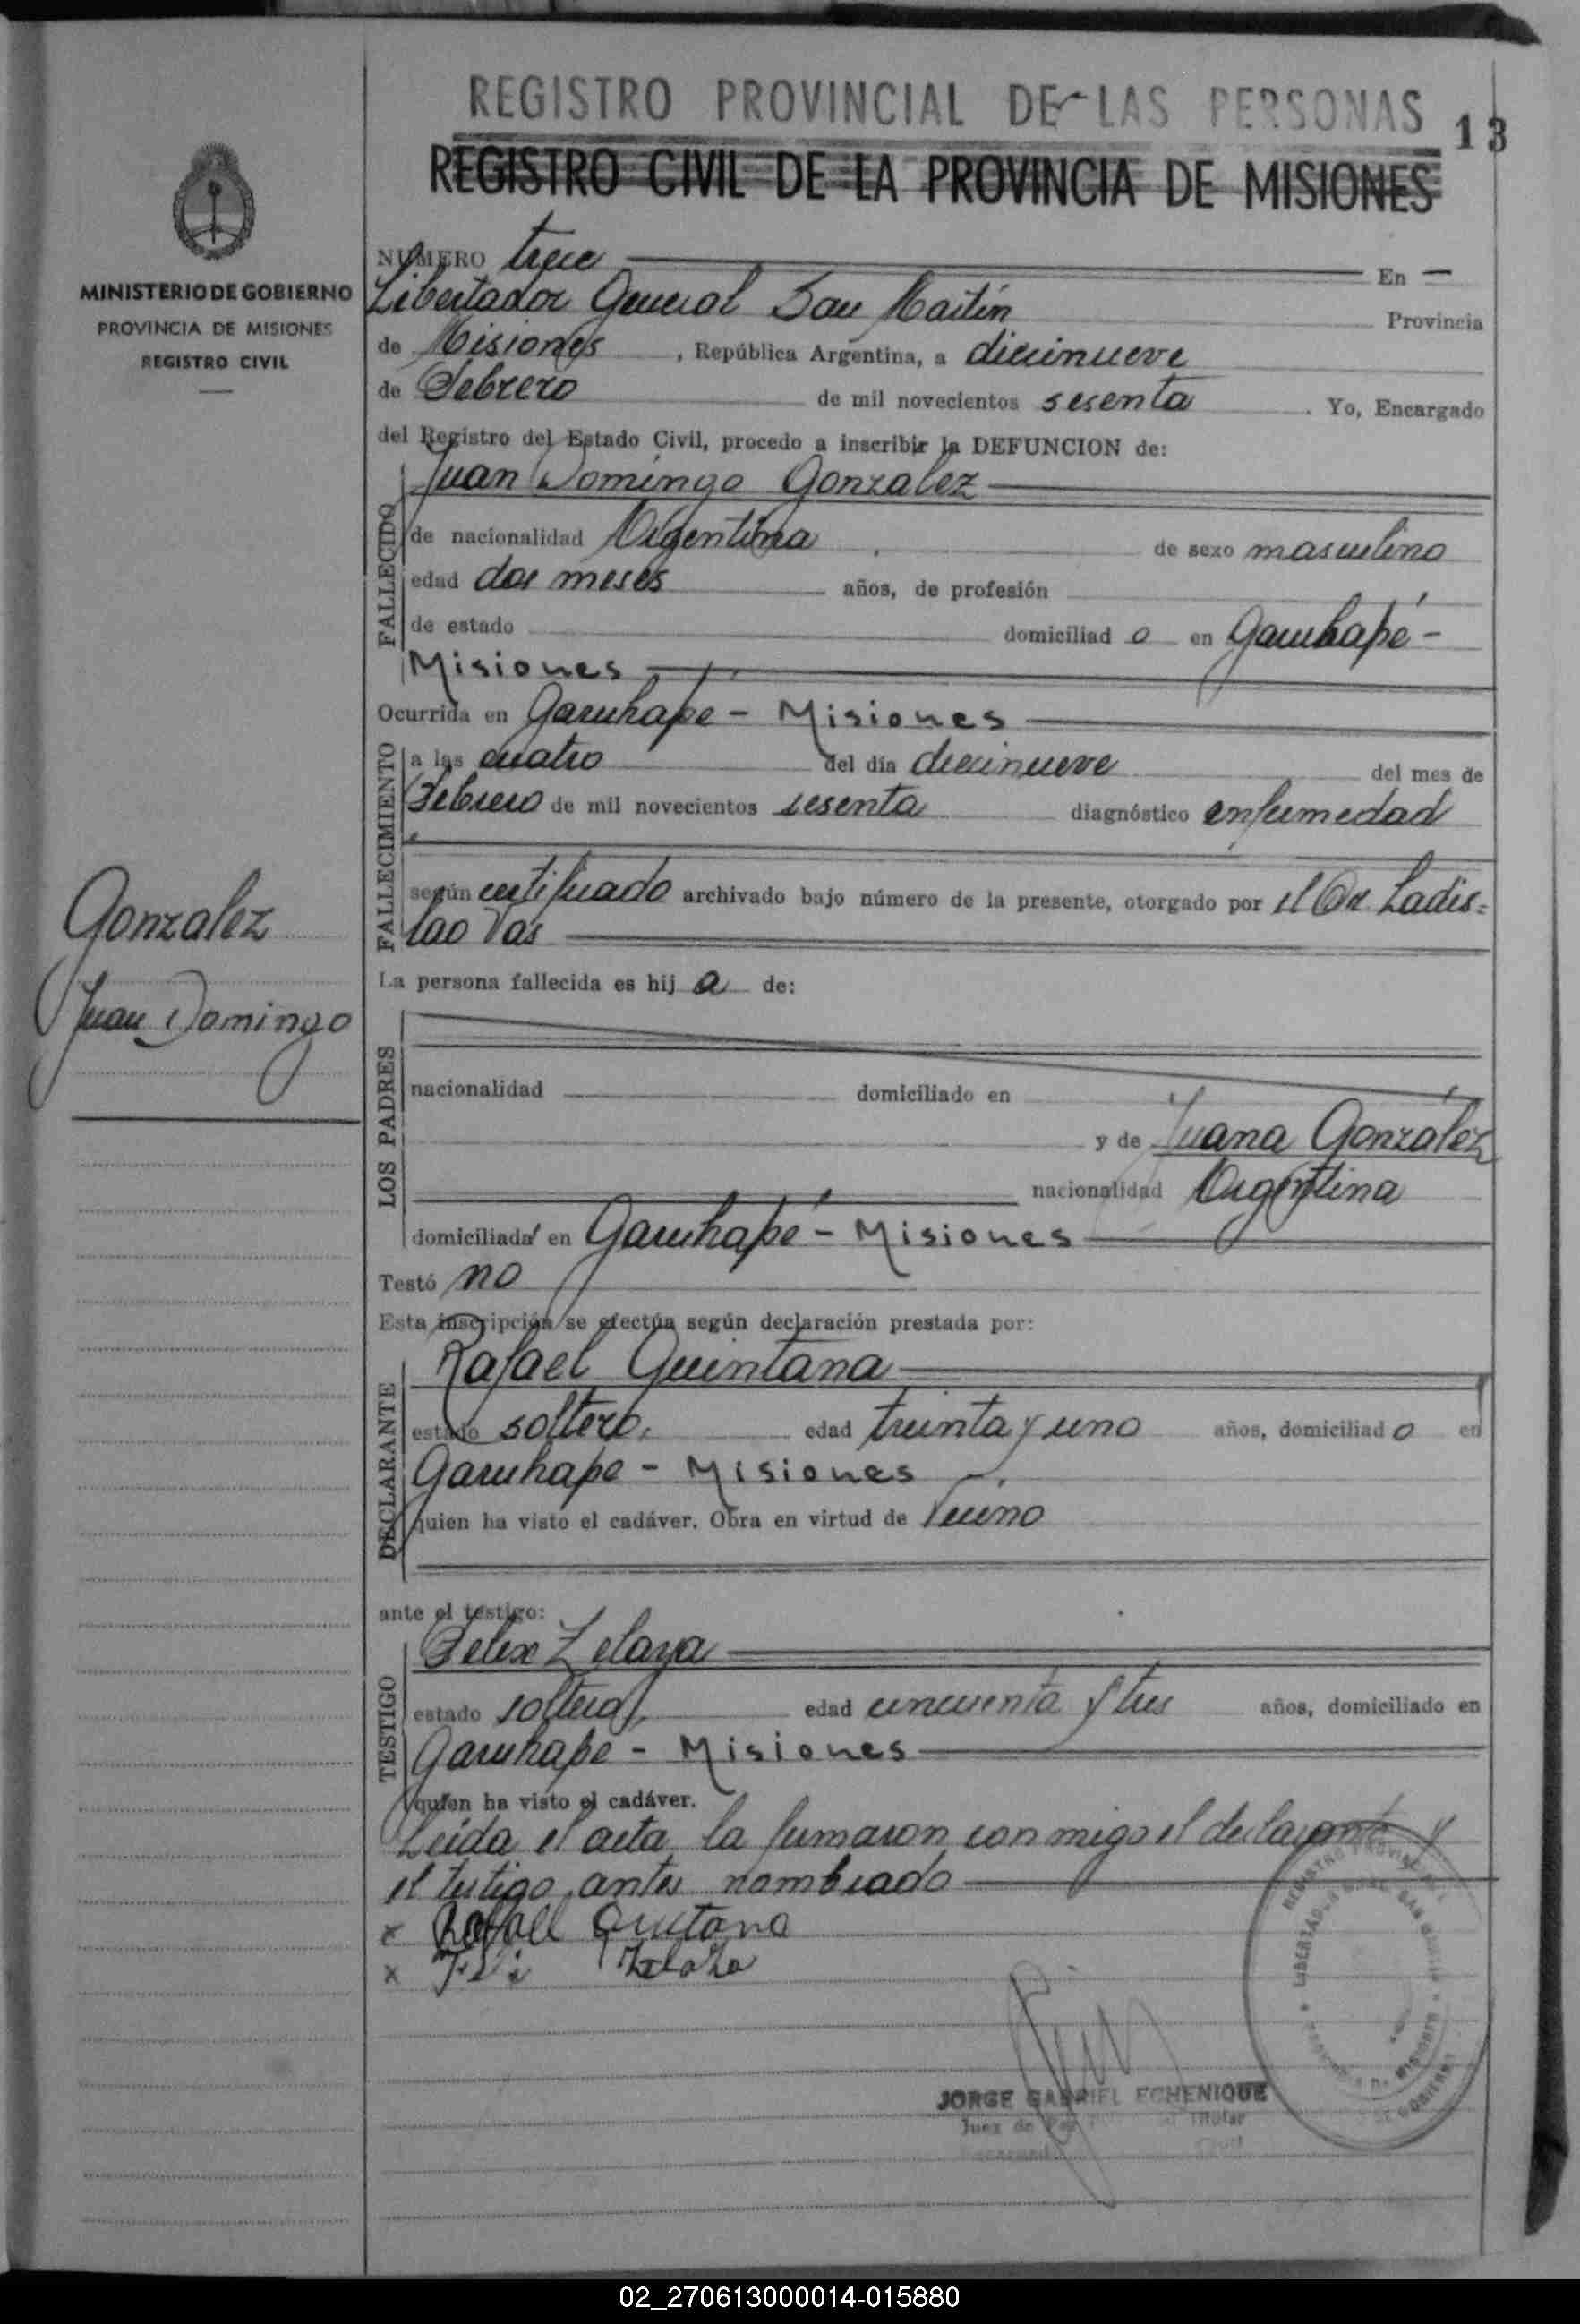 REGISTRO PROVINCIAL DE LAS PERSONAS
13
REGISTRO CIVIL DE LA PROVINCIA DE MISIONES
MINISTERIO DE GOBIERNO
PROVINCIA DE MISIONES
REGISTRO CIVIL
NUMERO trece En
Libertador General San Martín Provincia
de Misiones, República Argentina, a diecinueve
de Febrero de mil novecientos sesenta. Yo, Encargado
del Registro del Estado Civil, procedo a inscribir la DEFUNCION de:
FALLECIDO
Juan Domingo Gonzalez
de nacionalidad Argentina, de sexo masculino
edad dos meses años, de profesión
de estado domiciliado en Garuhapé -
Misiones
Ocurrida en Garuhapé - Misiones
FALLECIMIENTO
a las cuatro del día diecinueve del mes de
Febrero de mil novecientos sesenta diagnóstico enfermedad
según certificado archivado bajo número de la presente, otorgado por el Dr Ladis=
lao Vas
Gonzalez
Juan Domingo
La persona fallecida es hija de:
LOS PADRES
nacionalidad domiciliado en
y de Juana González
nacionalidad Argentina
domiciliada en Garuhapé - Misiones
Testó no
Esta inscripción se efectúa según declaración prestada por:
DECLARANTE
Rafael Quintana
estado soltero, edad treinta y uno años, domiciliado en
Garuhape - Misiones
quien ha visto el cadáver. Obra en virtud de Vecino
ante el testigo:
TESTIGO
Felix Zelaya
estado soltero, edad cincuenta y tres años, domiciliado en
Garuhape - Misiones
quien ha visto el cadáver.
Leida el acta la firmaron conmigo el declarante y
el testigo antes nombrado
x Rafael Quintana
x Zelaya
JORGE GABRIEL ECHENIQUE
Juez de Paz Titular
REGISTRO PROVINCIAL
LIBERTADOR GRAL. SAN MARTIN
MISIONES
02_270613000014-015880